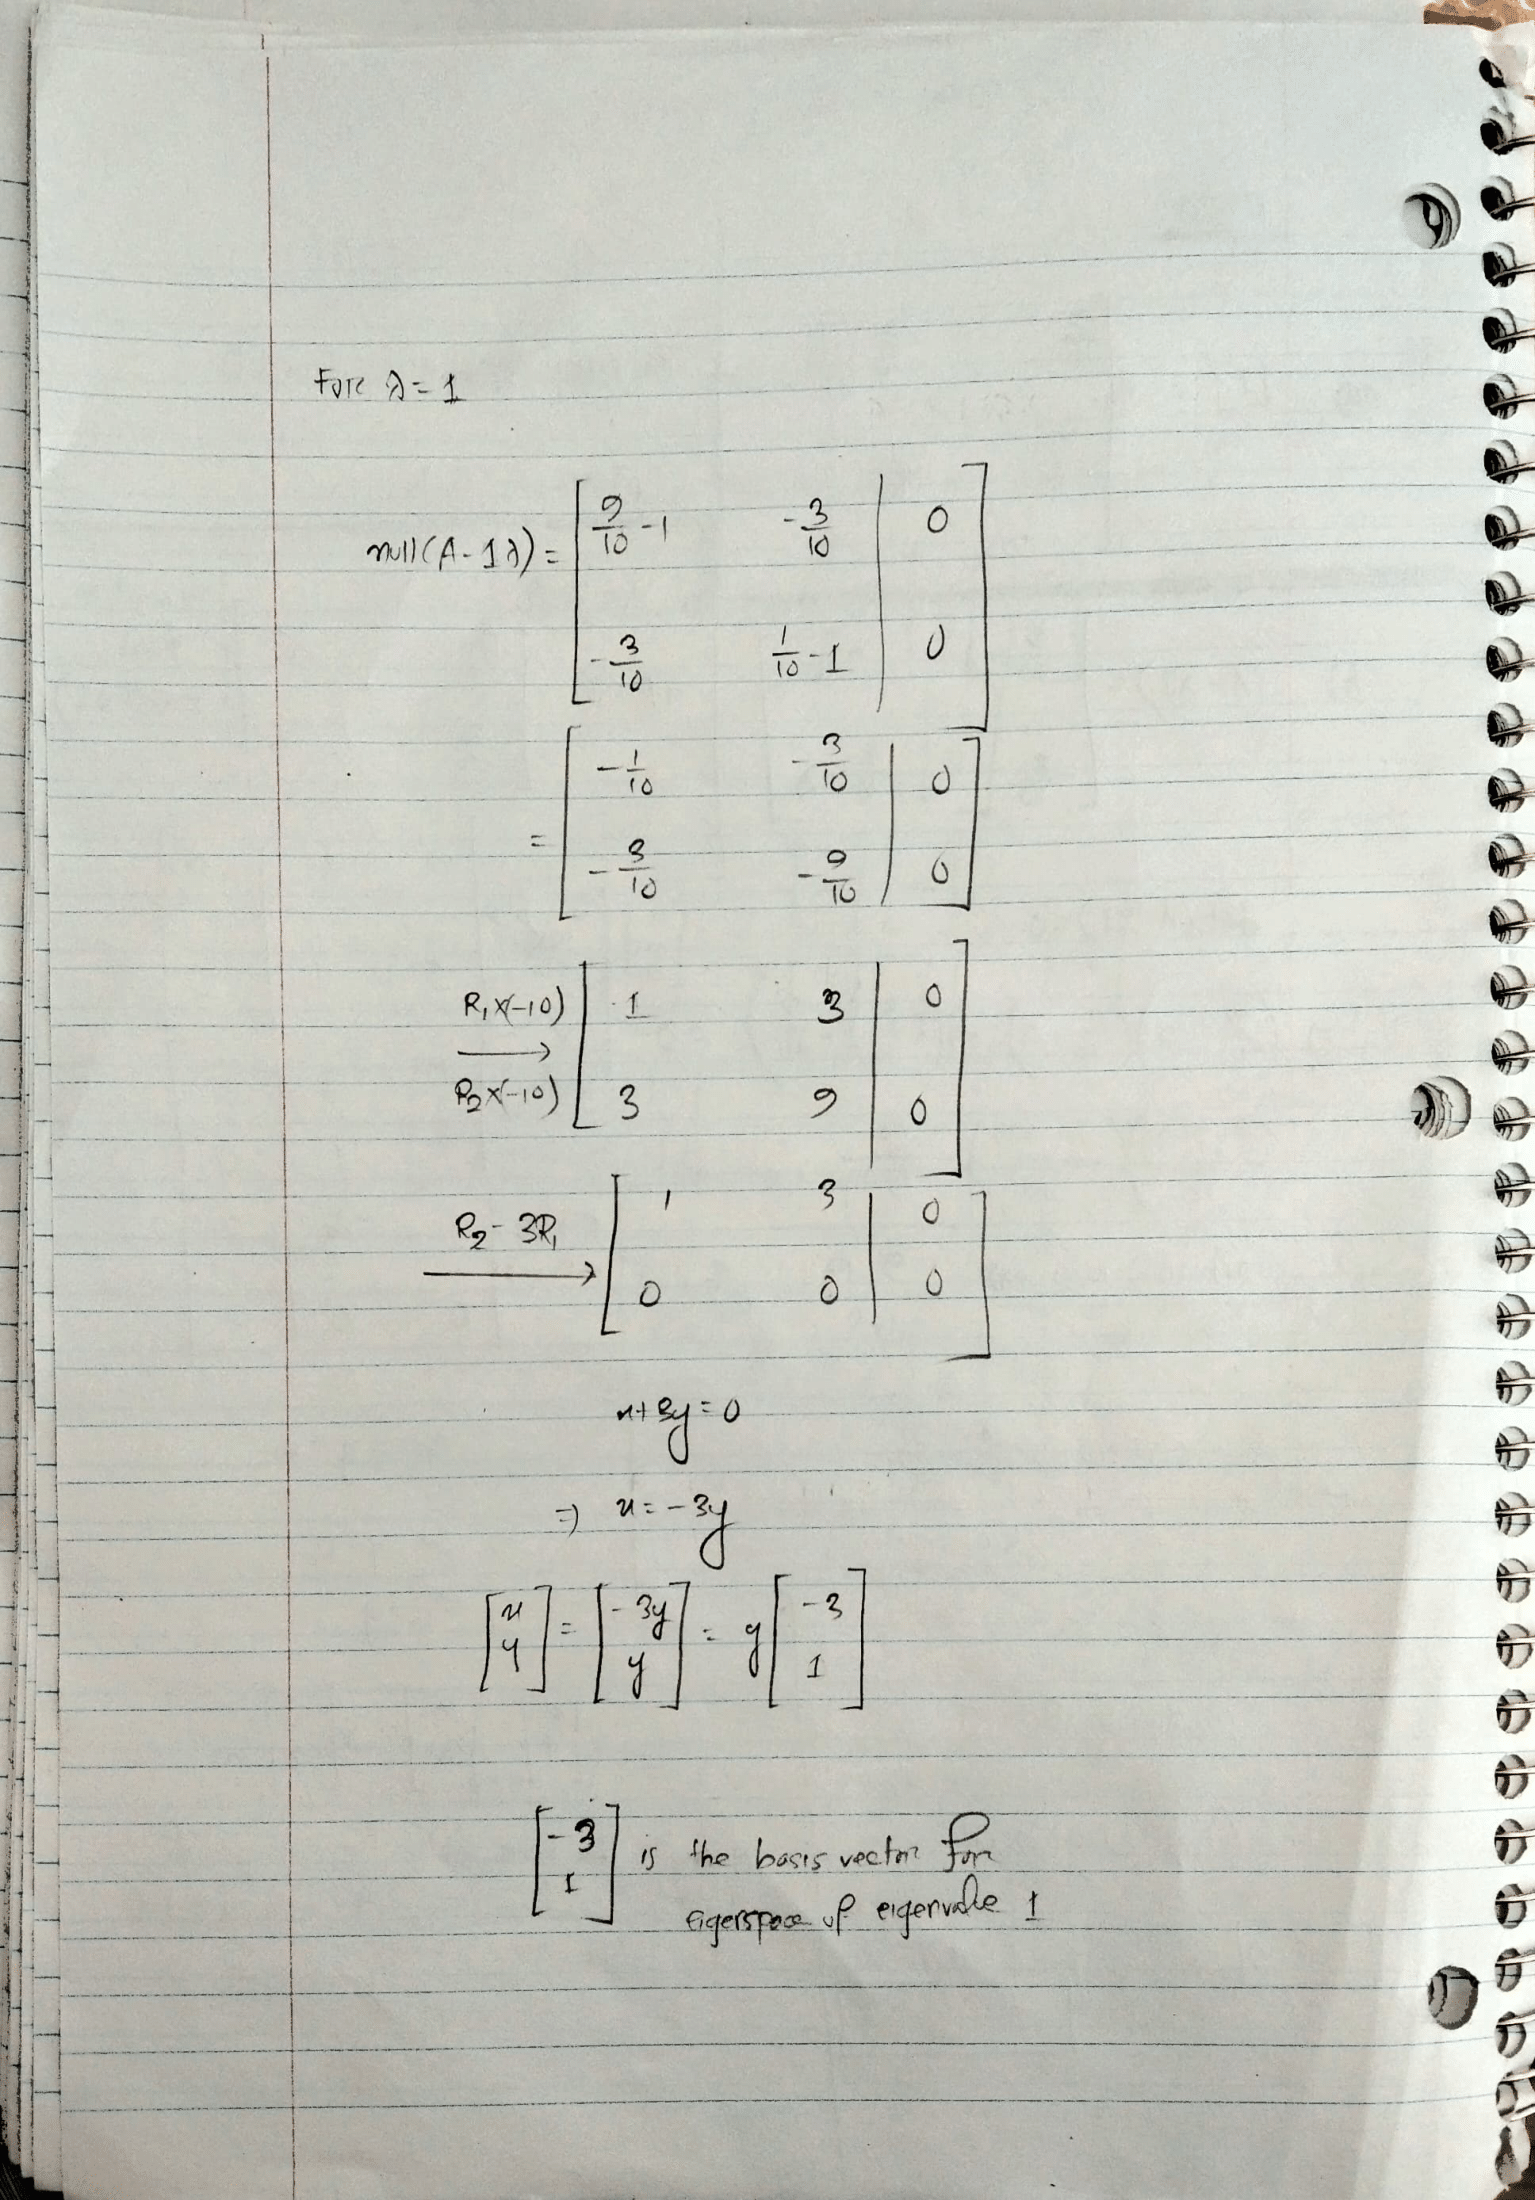 Fore λ = 1
null(A - 1λ) = [ 9/10 - 1   -3/10 | 0 ]
[ -3/10   1/10 - 1 | 0 ]
= [ -1/10   -3/10 | 0 ]
[ -3/10   -9/10 | 0 ]
R₁×(-10) → [ 1   3 | 0 ]
R₂×(-10) [ 3   9 | 0 ]
R₂ - 3R₁ → [ 1   3 | 0 ]
[ 0   0 | 0 ]
x + 3y = 0
⇒ x = -3y
[ x ; y ] = [ -3y ; y ] = y [ -3 ; 1 ]
[ -3 ; 1 ] is the basis vector for
eigenspace of eigenvalue 1